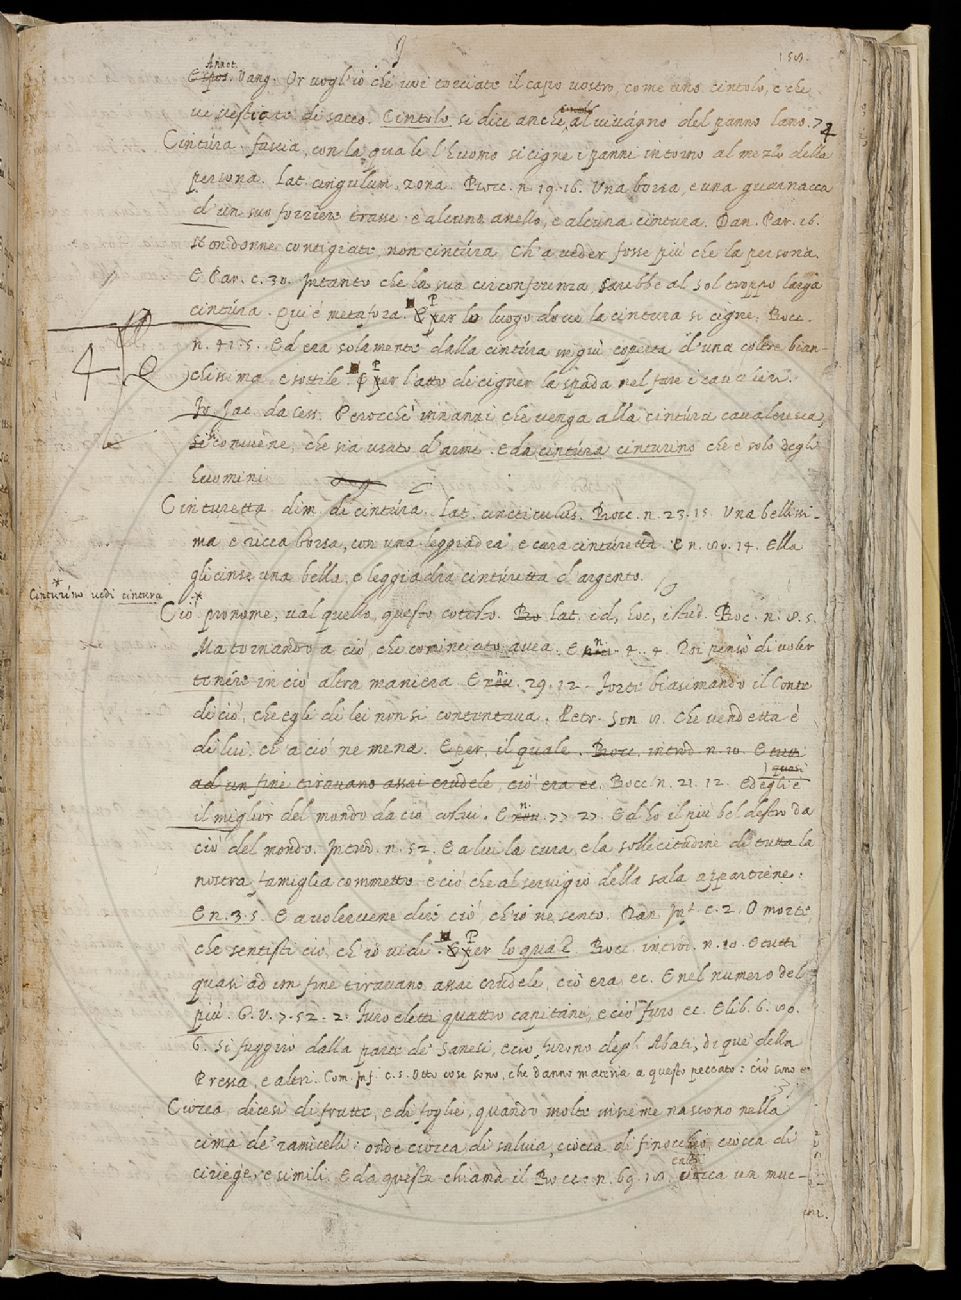 159.
Annot. Vang. Or voglio che voi cocciate il capo vostro, come uno cintolo, e che
ve vestiate di sacco. Cintolo si dice anche, al vivagno del panno lano. 74
Cintúra. fascia, con la quale l'huomo si cigne i panni intorno al mezzo della
persona. Lat. cingulum, zona. Bocc. n. 19. 16. Una borsa, e una guarnacca
d'un suo forziere trasse e alcuno anello, e alcuna cintura. Dan. Par. 16.
Non donne contigiate, non cintúra, Ch'a veder fosse più che la persona.
E Par. c. 30. Intanto che la sua circonferenza, Sarebbe al sol troppo larga
cintúra. Qui è metafora. Per lo luogo dove la cintura si cigne. Bocc.
n. 41. 5. Ed era solamente dalla cintúra in giù coperta d'una coltre bian-
chissima e sottile. Per l'atto di cigner la spada nel fare i cavalieri.
Fr. Jac. da Cess. Perocchè innanzi che venga alla cintúra cavaleresca,
si conviene, che sia usato d'arme. E da cintúra cinturino che è solo degli
huomini
Cinturetta dim. di cintúra. Lat. cincticulus. Bocc. n. 23. 15. Una bellissi-
ma e ricca borsa, con una leggiadra e cara cinturetta E n. 80. 14. Ella
gli cinse una bella, e leggiadra cinturetta d'argento.
Cinturino vedi cintura
Ciò pronome, val quello, questo cotesto. Lat. id, hoc, istud. Boc. n. 8. 5.
Ma tornando a ciò, che cominciato avea. E n. 4. 4. Poi pensò di voler
tenere in ciò altra maniera E n. 29. 12. Forte biasimando il Conte
di ciò, che egli di lei non si contentava. Petr. Son. 8. Che vendetta è
di lui, ch'a ciò ne mena. E per, il quale. Bocc. introd. n. 10. E tutti
ad un fine tiravano assai crudele, ciò era ec. Bocc. n. 21. 12. Ed egli è
quasi
il miglior del mondo da ciò costui. E n. 77. 27. Ed ho il più bel destro da
ciò del mondo. Introd. n. 52. E a lui la cura, e la sollecitudine di tutta la
nostra famiglia commetto e ciò che al servigio della sala appartiene.
E n. 3. 5. E a volervene dire ciò ch'io ne sento. Dan. Inf. c. 2. O morte
che sentisti ciò, ch'io vedi. Per lo qual. Bocc. introd. n. 10. E tutti
quasi ad un fine tiravano assai crudele, ciò era ec. E nel numero del
più. G. V. 7. 52. 2. Furo eletti quattro capitani, e ciò furo ec. E lib. 6. 80.
6. Si fuggiro dalla parte de' Sanesi, e ciò furono degl'Abati, di que' della
Pressa, e altri. Com. Inf. c. 5. Otto cose sono, che danno materia a questo peccato: ciò sono ec
Ciocca, dicesi di frutte, e di foglie, quando molte insieme nascono nella
cima de' ramicelli: onde ciocca di salvia, ciocca di finocchio, ciocca di
ciriege, e simili. E da questa chiama il Bocc. n. 69. 18. ciocca un muc-